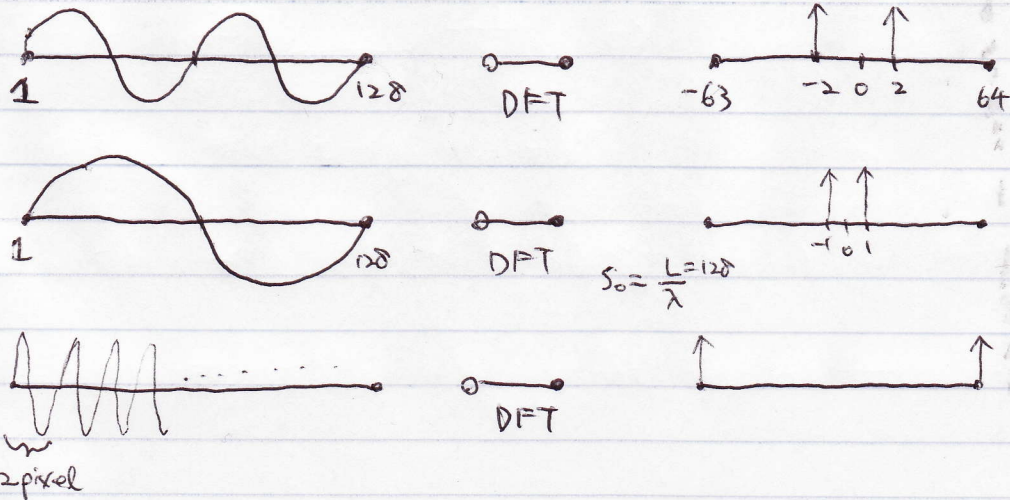 1 128 DFT -63 -2 0 2 64
1 128 DFT -1 0 1
S₀ = L=128
λ
DFT
2pixel